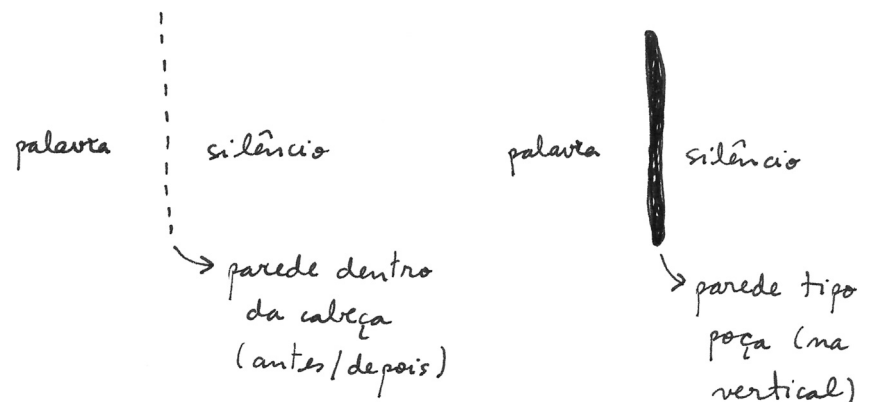 palavra silêncio
parede dentro
da cabeça
(antes/depois)
palavra silêncio
parede tipo
poça (na
vertical)